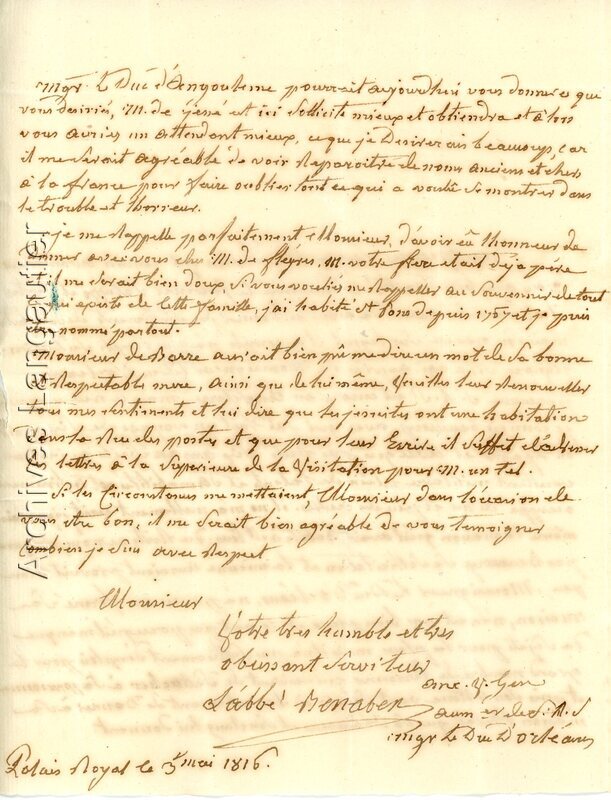 Mgr. Le Duc d'Angouleme pourrait aujourdhui vous donner ce que
vous desiriés, M. de est ici sollicite mieux et obtiendra et alors
vous auriés un attendant mieux, ce que je Desirerais beaucoup, car
il me serait agréable de voir Reparoitre de noms anciens et chers
à la france pour faire oublier tout ce qui a voulû se montrer dans
le trouble et lhorreur.
je me Rappelle parfaitement Monsieur, d'avoir eû lhonneur de
avec vous chés M. de fleyres, M. votre frere etait déja pére
il me serait bien doux, si vous vouliés me Rappeller au souvenir de tout
ce qui existe de cette famille, j'ai habité St Pons depuis 1767 et je puis
nommé partout.
Monsieur de Barre aurait bien pû me dire un mot de sa bonne
et Respectable mere, ainsi que de lui même, Veuilles leur Renouveller
tous mes sentiments et lui dire que les jesuites ont une habitation
Dans la Rue des postes et que pour leur Ecrire il suffit d'adresser
les lettres à la Superieure de la Visitation pour M. un tel.
Si les Circonstances me mettaient, Monsieur dans l'occasion de
vous être bon, il me serait bien agréable de vous temoigner
Combien je suis avec Respect
Monsieur
Votre tres humble et tres
obeissant Serviteur
L'abbé Benaben
anc. V. Gen
aum er de S. A. S
mgr Le Duc D'orléans
Palais Royal le 5 mai 1816.
Archives Lengaufier